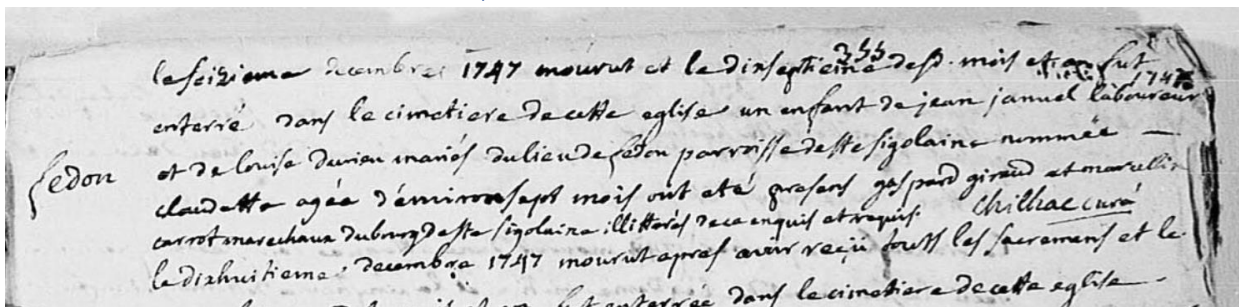 le seizieme decembre 1747 mourut et le dixseptieme desd. mois et an fut
enterré dans le cimetiere de cette eglise un enfant de jean januel laboureur
Ledon
et de louise durieu mariés du lieu de Ledon parroisse de ste sigolaine nommée
claudette agée d'environ sept mois ont eté presens gaspard giraud et marcellin
carrot marechaux du bourg de ste sigolaine illitterés de ce enquis et requis. Chilhac curé
le dixhuitieme decembre 1747 mourut apres avoir reçu touts les sacremens et le
enterrée dans le cimetiere de cette eglise